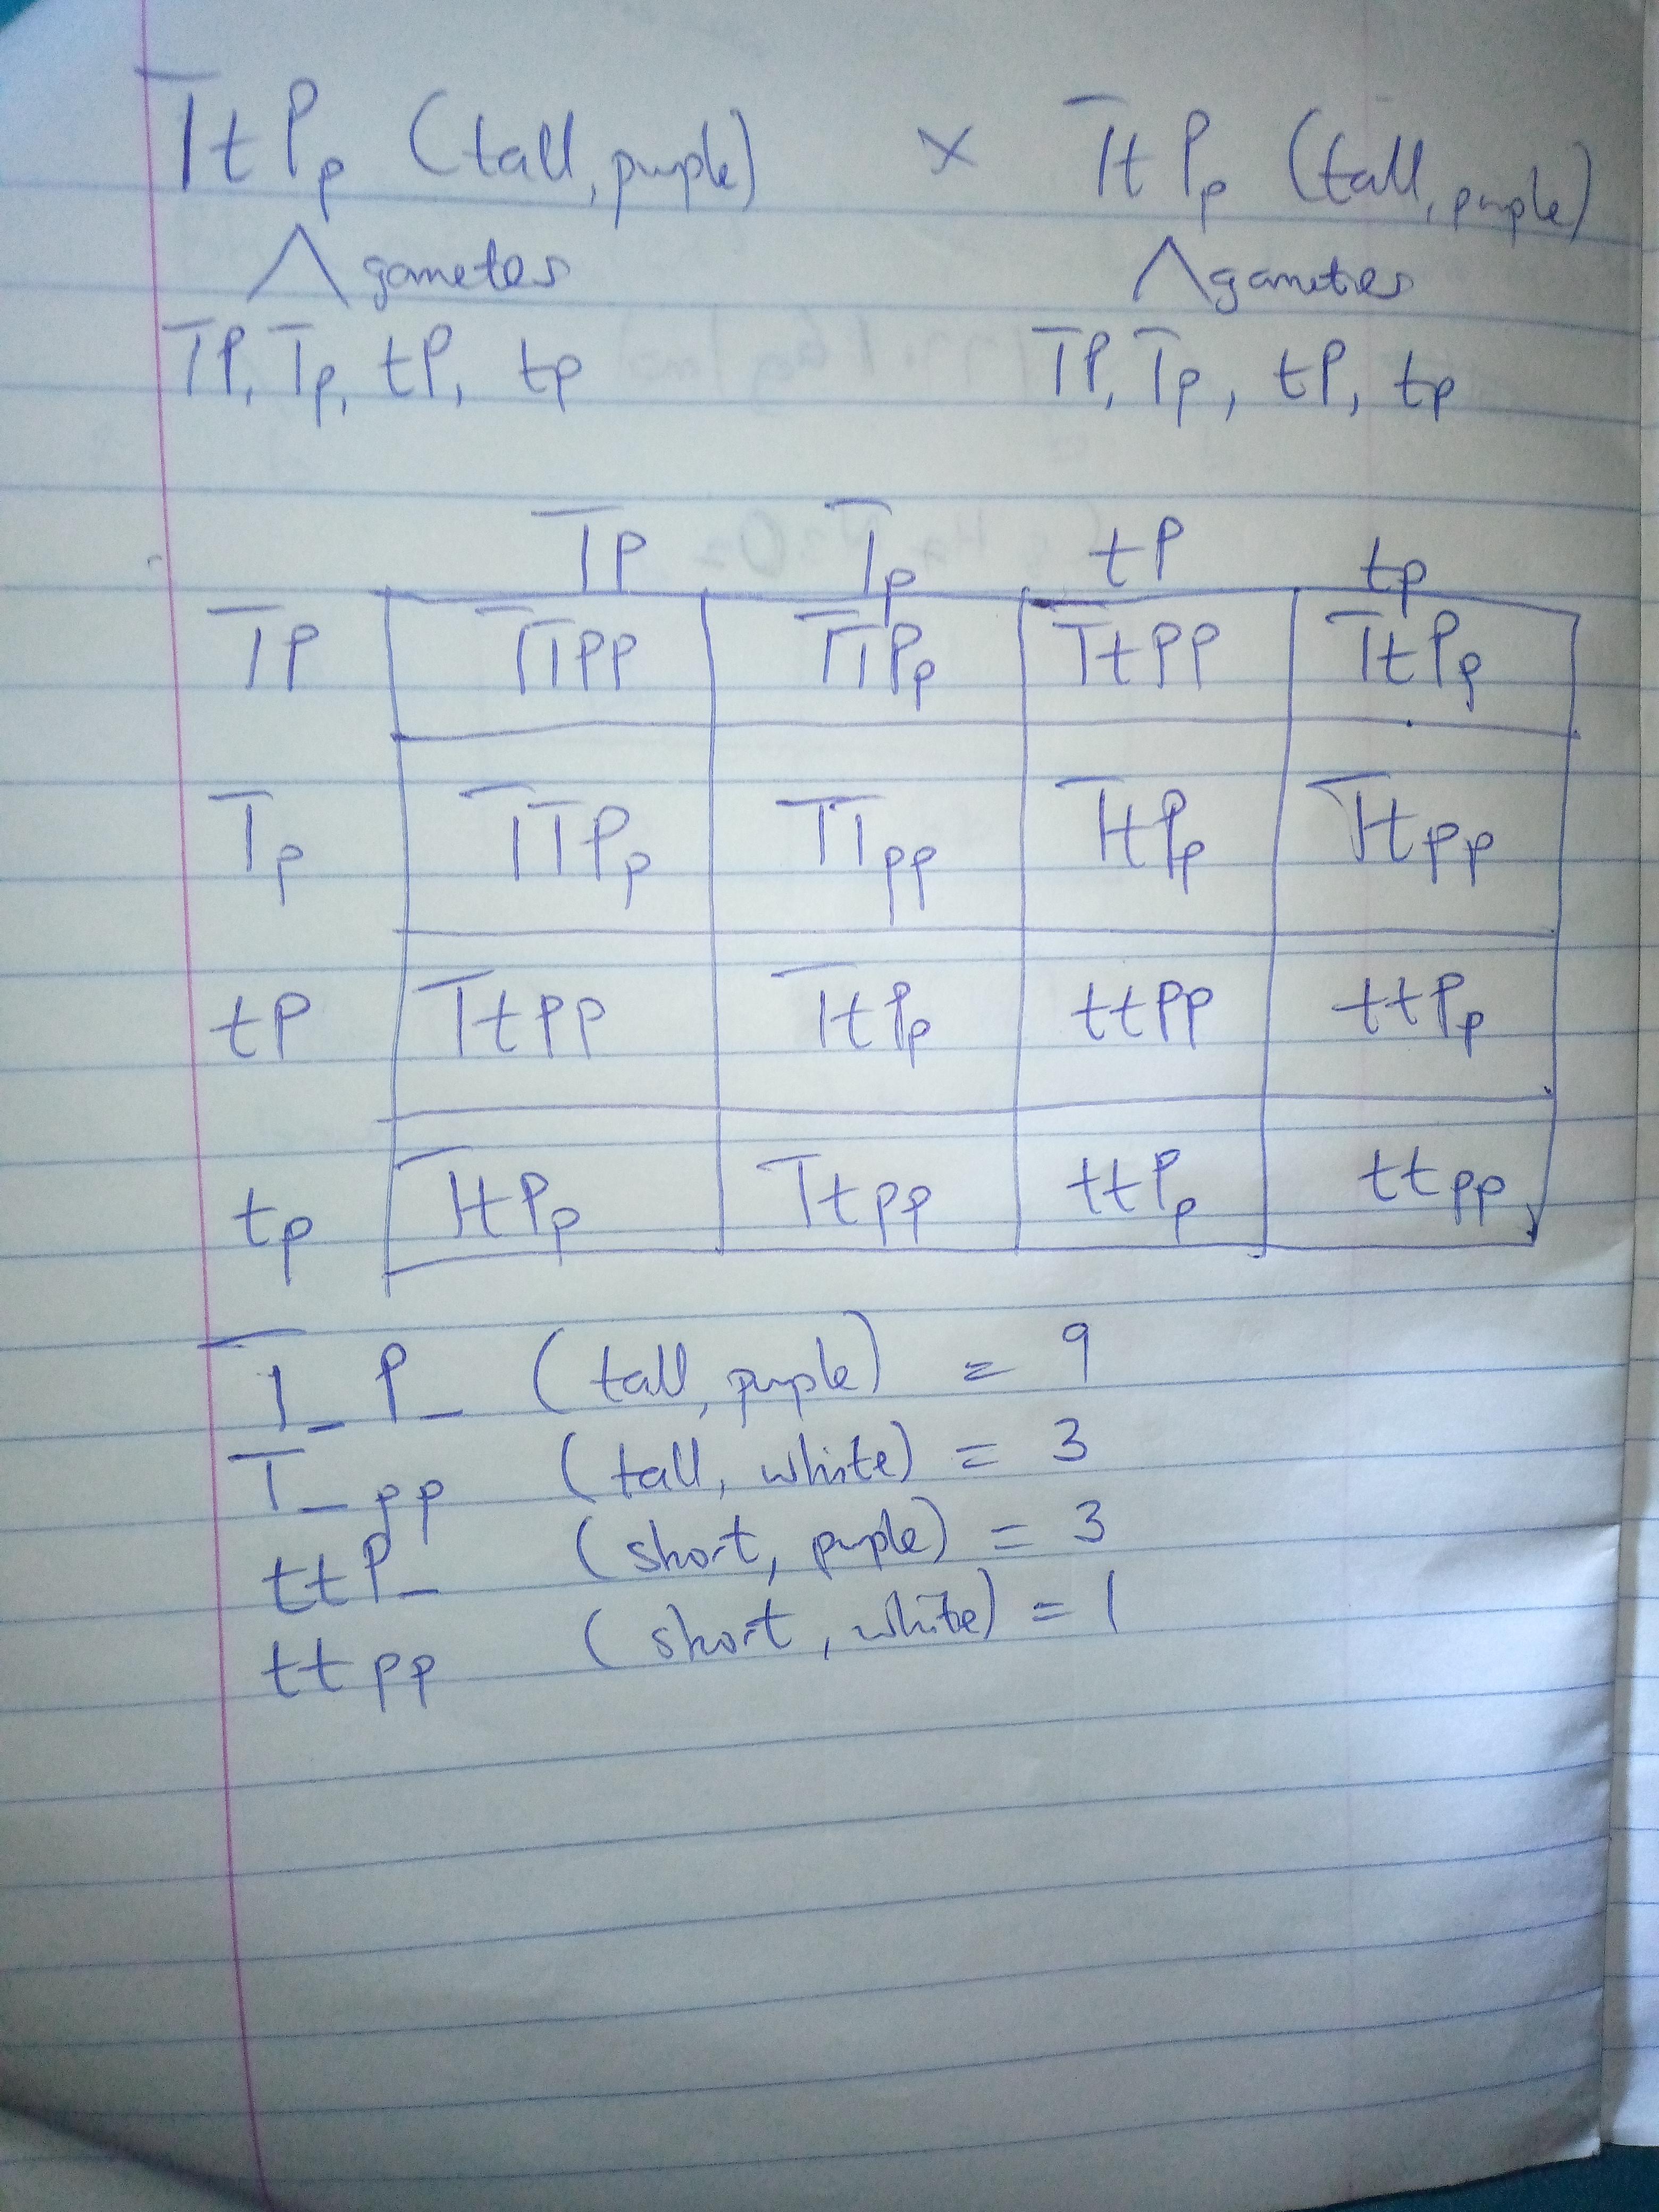 TtPp (tall, purple) × TtPp (tall, purple)
gametes gametes
TP, Tp, tP, tp TP, Tp, tP, tp
TP Tp tP tp
TP TTPP TTPp TtPP TtPp
Tp TTPp TTpp TtPp Ttpp
tP TtPP TtPp ttPP ttPp
tp TtPp Ttpp ttPp ttpp
T_ P_ (tall, purple) = 9
T_ pp (tall, white) = 3
ttP_ (short, purple) = 3
ttpp (short, white) = 1